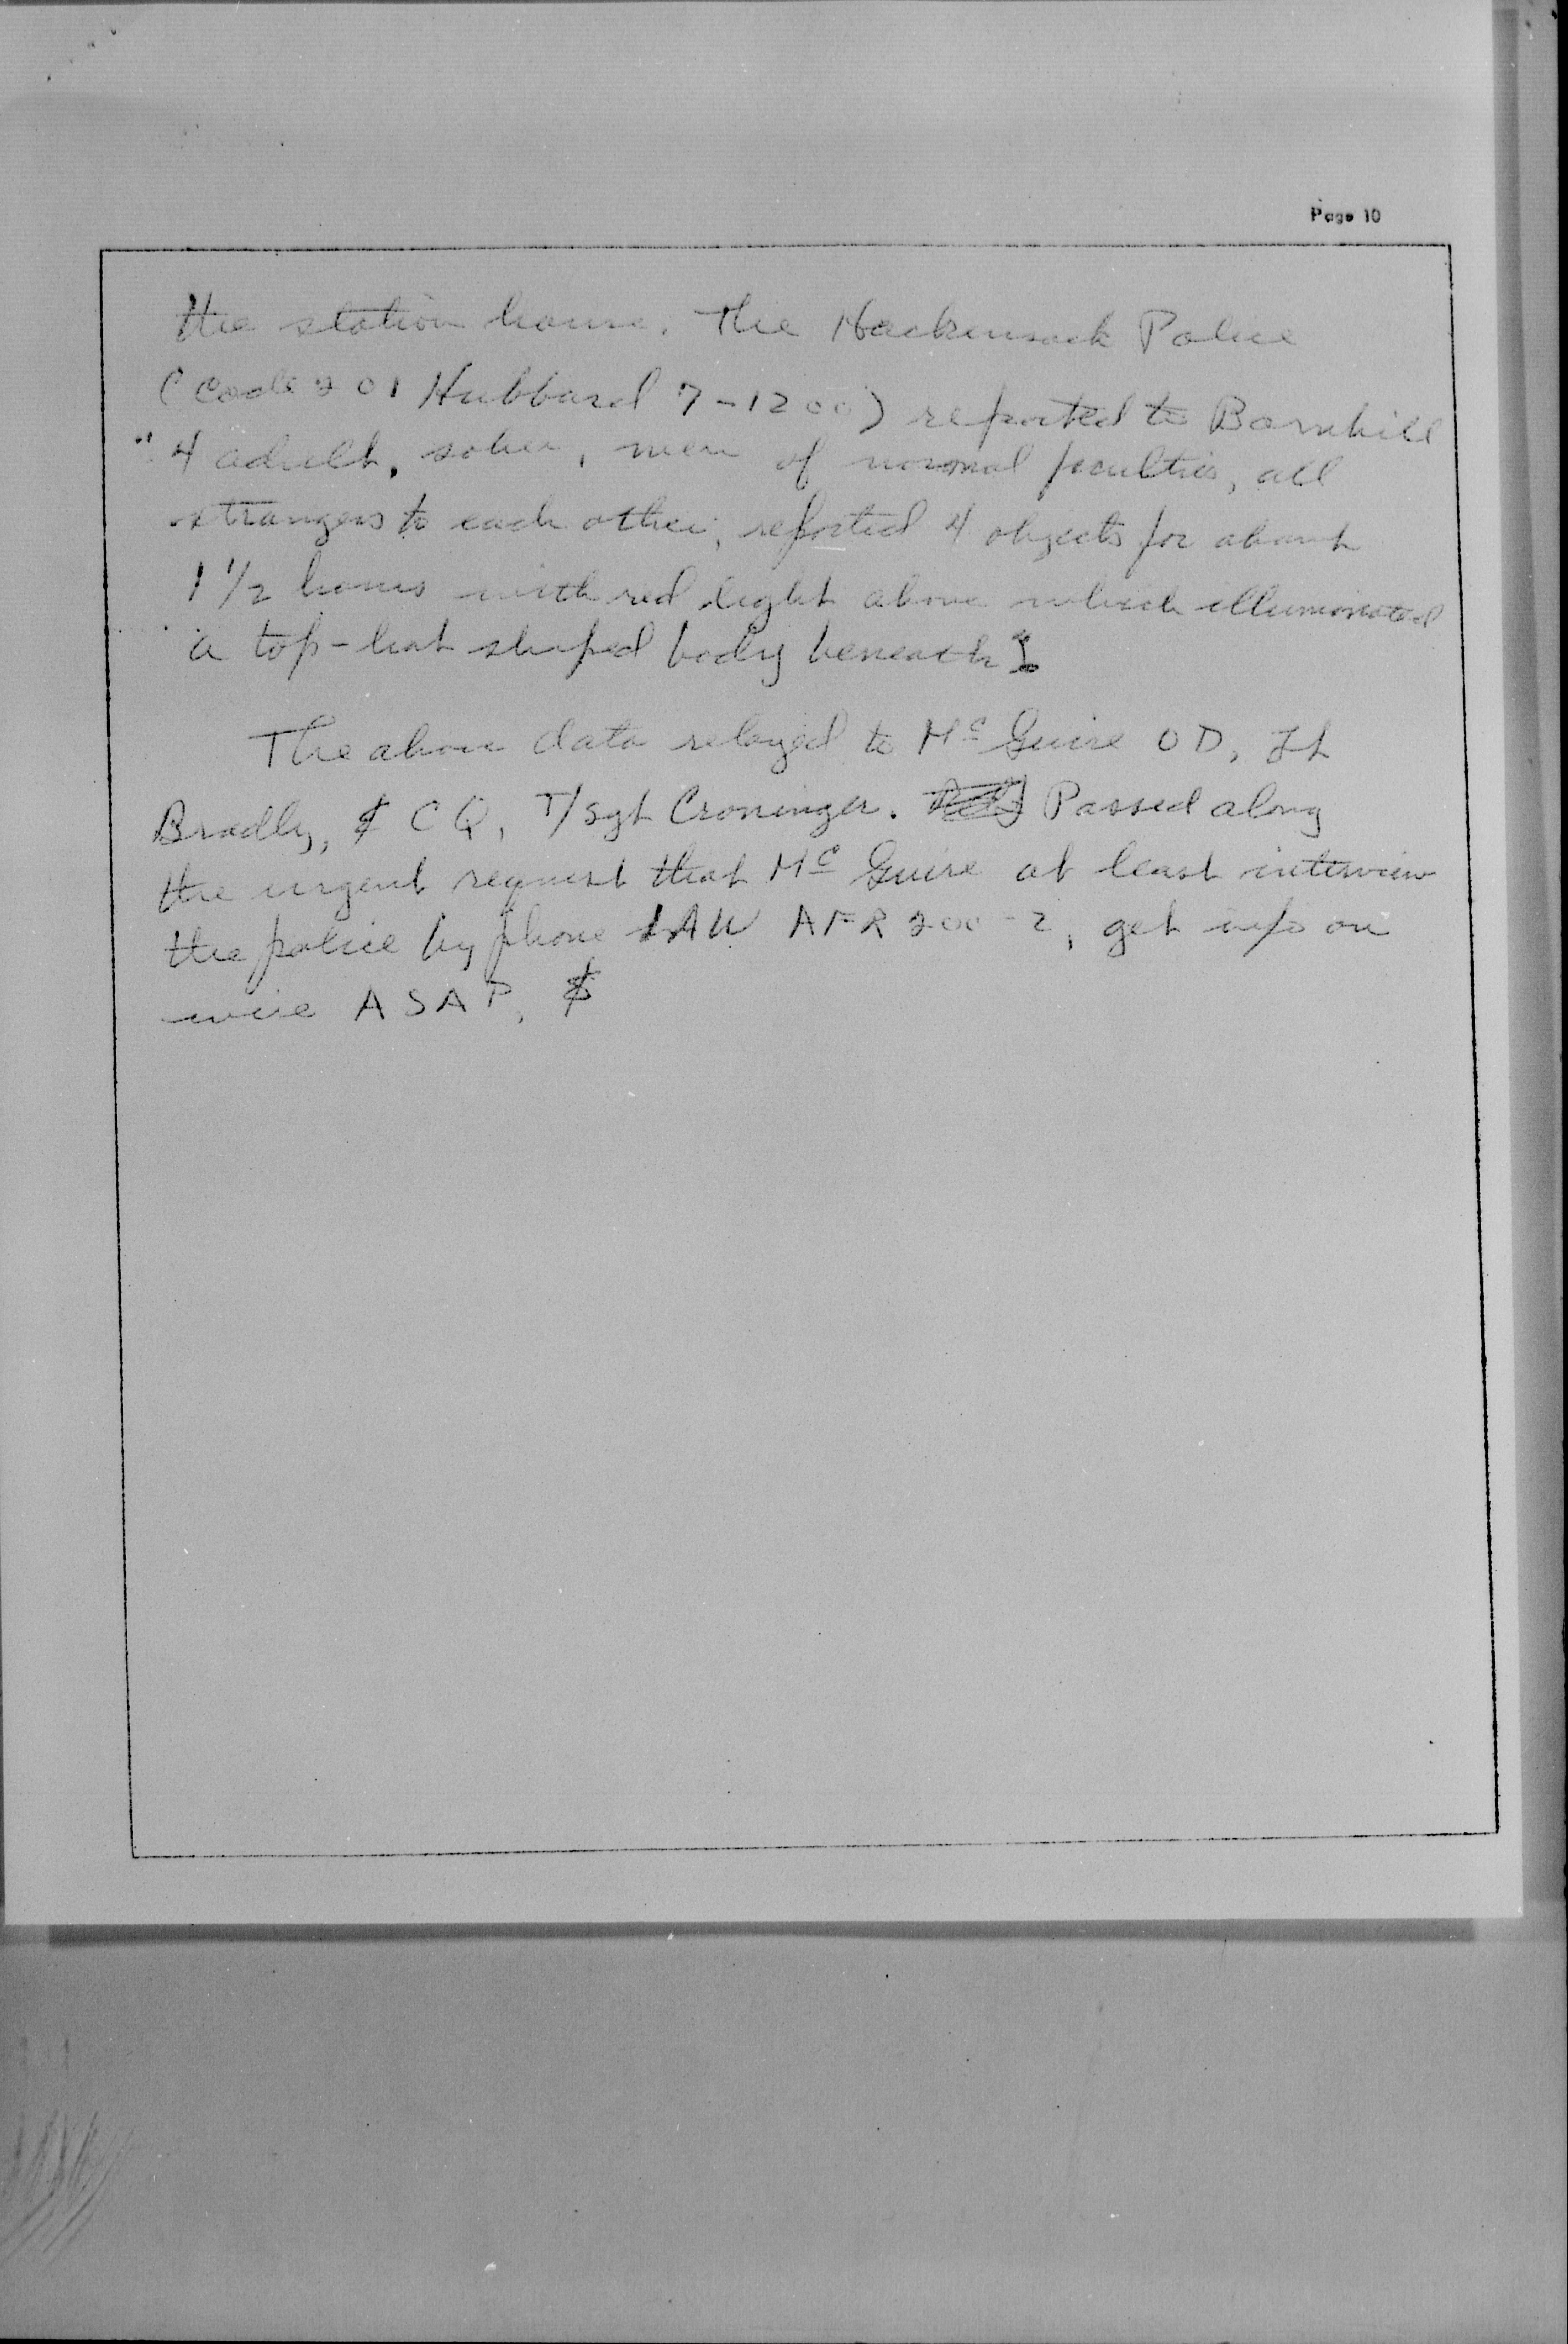 Page 10
the station house. The Hackensack Police
(Code 201 Hubbard 7-1200) reported to Barnhill
"4 adult, sober, men of normal faculties, all
strangers to each other, reported 4 objects for about
1 1/2 hours with red light above which illuminated
a top-hat shaped body beneath
The above data relayed to McGuire OD, Lt
Bradly, & CQ, T/Sgt Croninger. Passed along
the urgent request that McGuire at least interview
the police by phone IAW AFR 200-2, get info on
wire ASAP, &